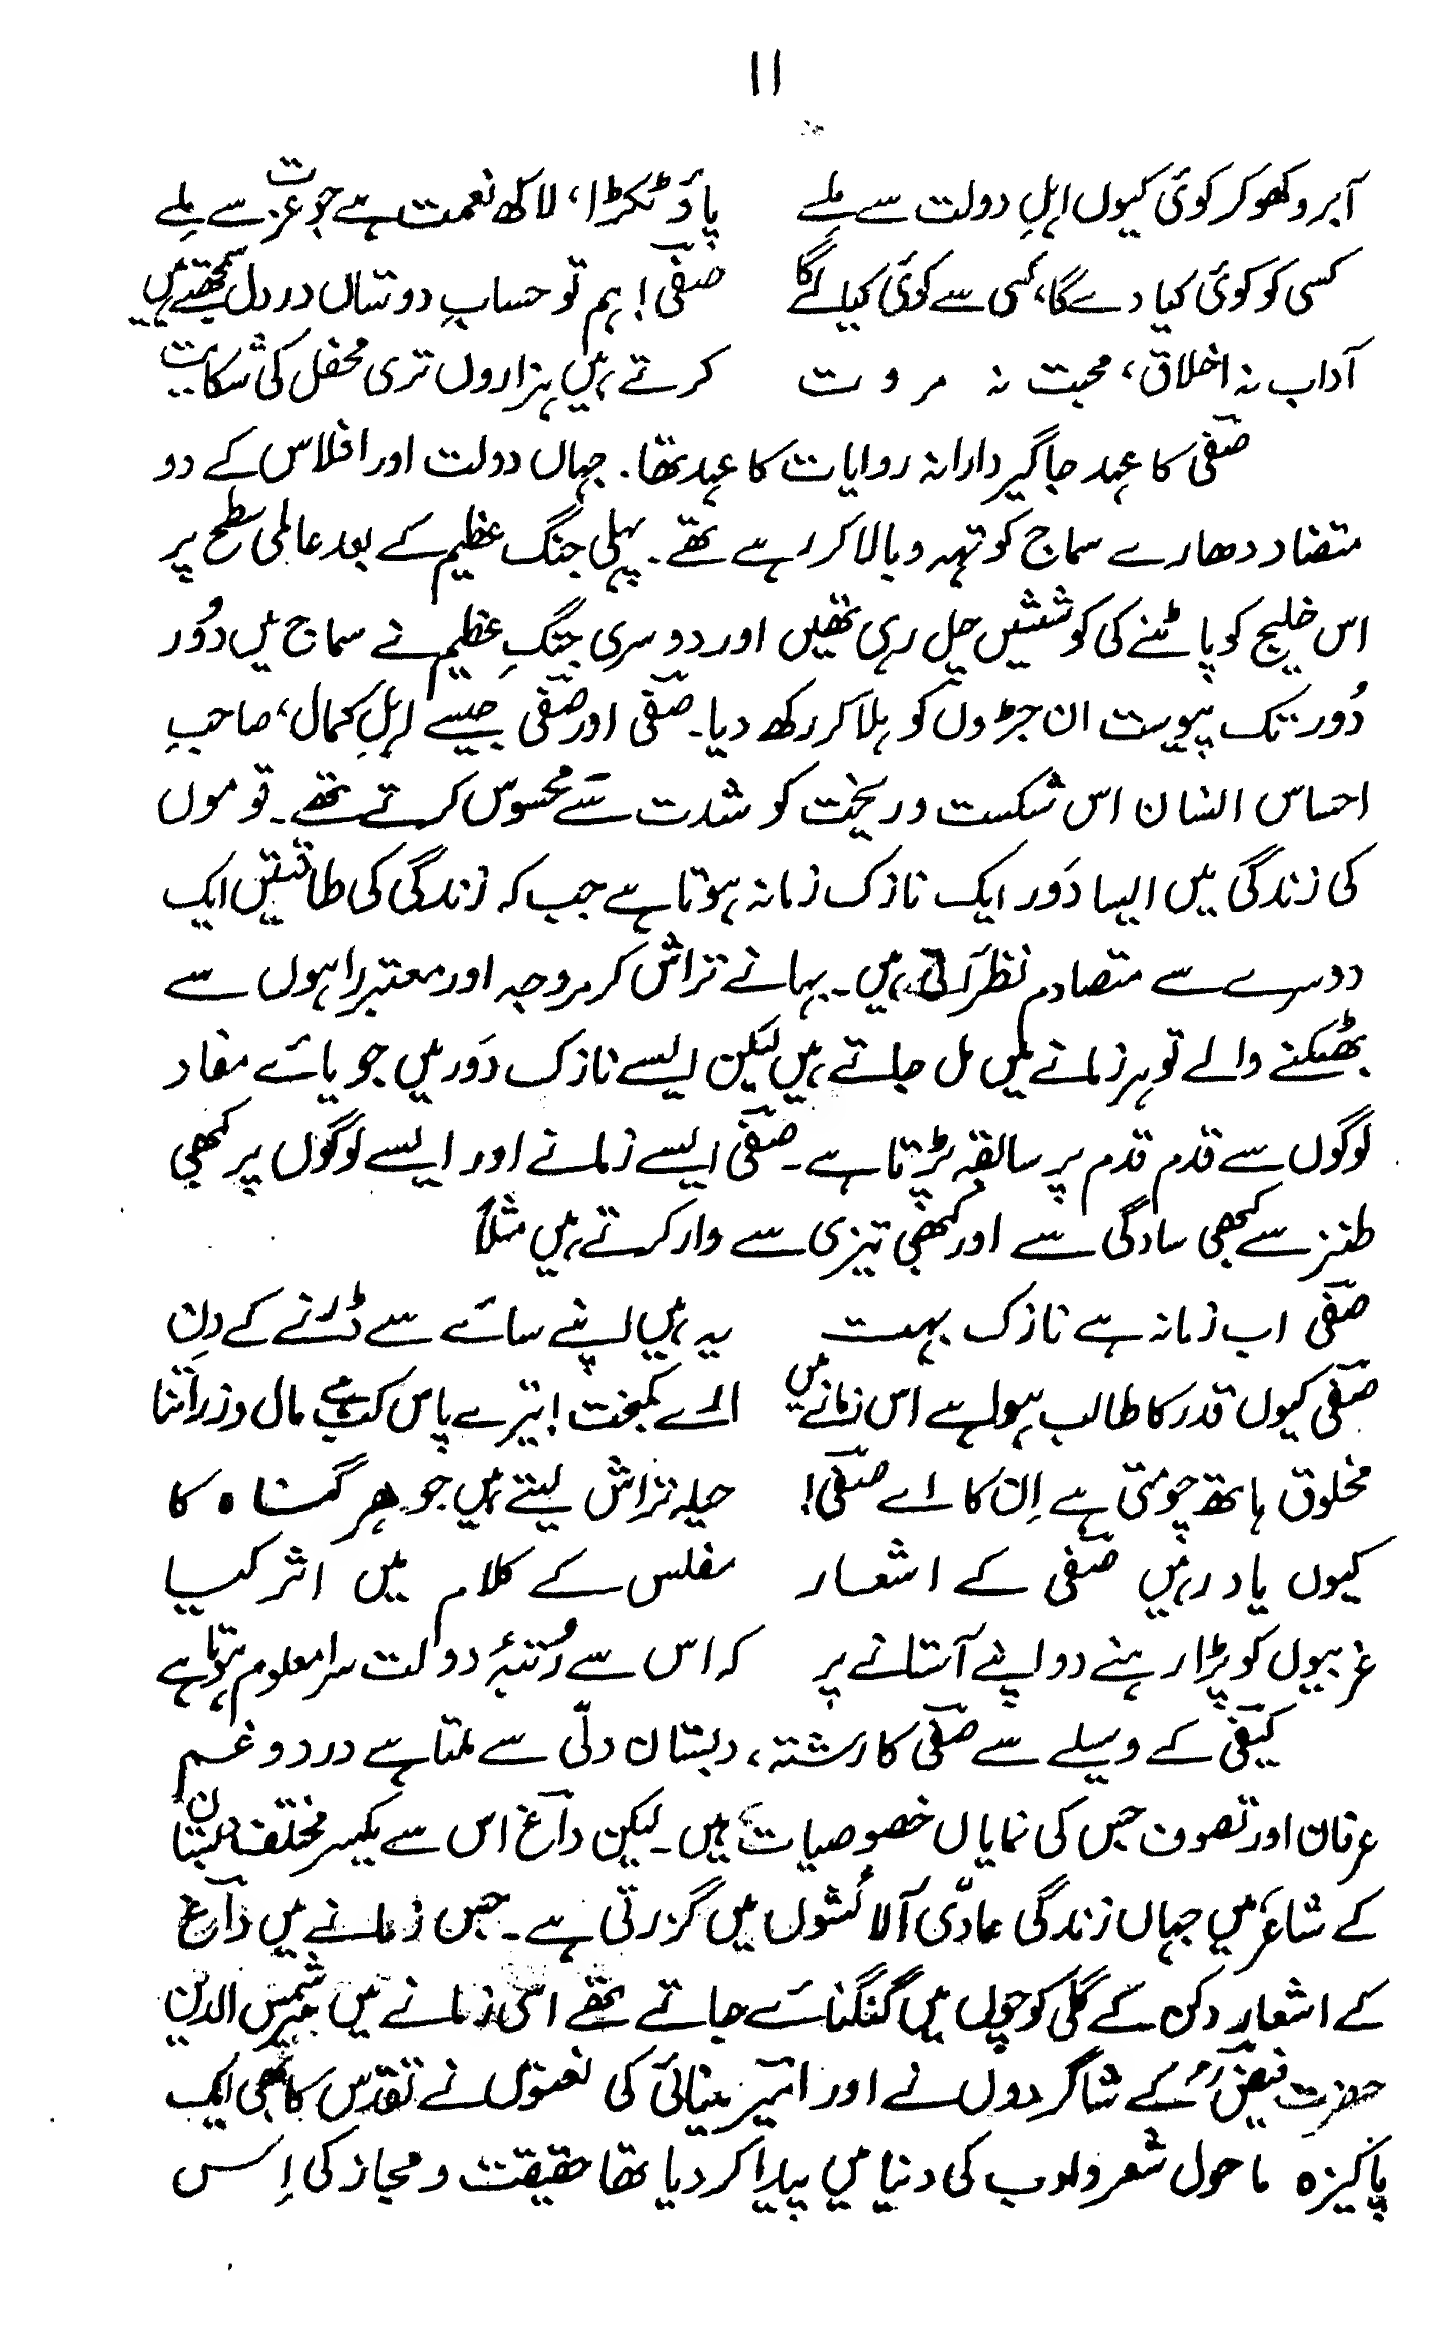 ۱۱
آبرو کھو کر کوئی کیوں اہلِ دولت سے ملے پاؤ ٹکڑا، لاکھ نعمت ہے جو عزت سے ملے
کسی کو کوئی کیا دے گا، کسی سے کوئی کیا لے گا صفیؔ! ہم تو حسابِ دوستاں در دل سمجھتے ہیں
آداب نہ اخلاق، محبت نہ مروت کرتے ہیں ہزاروں تری محفل کی شکایت
صفیؔ کا عہد جاگیردارانہ روایات کا عہد تھا۔ جہاں دولت اور افلاس کے دو
متضاد دھارے سماج کو تہہ و بالا کر رہے تھے۔ پہلی جنگ عظیم کے بعد عالمی سطح پر
اس خلیج کو پاٹنے کی کوششیں چل رہی تھیں اور دوسری جنگِ عظیم نے سماج میں دُور
دُور تک پیوست ان جڑوں کو ہلا کر رکھ دیا۔ صفیؔ اور صفیؔ جیسے اہلِ کمال، صاحبِ
احساس انسان اس شکست و ریخت کو شدت سے محسوس کرتے تھے۔ قوموں
کی زندگی میں ایسا دَور ایک نازک زمانہ ہوتا ہے جب کہ زندگی کی طاقتیں ایک
دوسرے سے متصادم نظر آتی ہیں۔ بہانے تراش کر مروجہ اور معتبر راہوں سے
بھٹکنے والے تو ہر زمانے میں مل جاتے ہیں لیکن ایسے نازک دَور میں جویائے مفاد
لوگوں سے قدم قدم پر سابقہ پڑتا ہے۔ صفیؔ ایسے زمانے اور ایسے لوگوں پر کبھی
طنز سے کبھی سادگی سے اور کبھی تیزی سے وار کرتے ہیں مثلاً
صفیؔ اب زمانہ ہے نازک بہت یہ ہیں اپنے سائے سے ڈرنے کے دِن
صفیؔ کیوں قدر کا طالب ہوا ہے اس زمانے میں ارے کمبخت! تیرے پاس کب ہے مال و زر اتنا
مخلوق ہاتھ چومتی ہے اِن کا اے صفیؔ! حیلہ تراش لیتے ہیں جو ہر گناہ کا
کیوں یاد رہیں صفیؔ کے اشعار مفلس کے کلام میں اثر کیا
غریبوں کو پڑا رہنے دو اپنے آستانے پر کہ اس سے رُتبۂ دولت سرا معلوم ہوتا ہے
کیفیؔ کے وسیلے سے صفیؔ کا رشتہ، دبستان دلّی سے ملتا ہے درد و غم
عرفان اور تصوف جس کی نمایاں خصوصیات ہیں۔ لیکن داغؔ اس سے یکسر مختلف دبستان
کے شاعر ہیں جہاں زندگی مادّی آلائشوں میں گزرتی ہے۔ جس زمانے میں داغؔ
کے اشعار دکن کے گلی کوچوں میں گنگنائے جاتے تھے اسی زمانے میں میر شمس الدین
حضرت فیضؔ کے شاگردوں نے اور امیرؔ مینائی کی نعتوں نے تقدّس کا بھی ایک
پاکیزہ ماحول شعر و ادب کی دنیا میں پیدا کر دیا تھا حقیقت و مجاز کی اِس